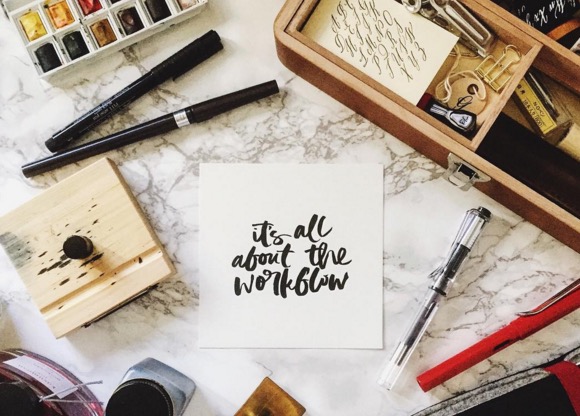 it's all
about the
workflow